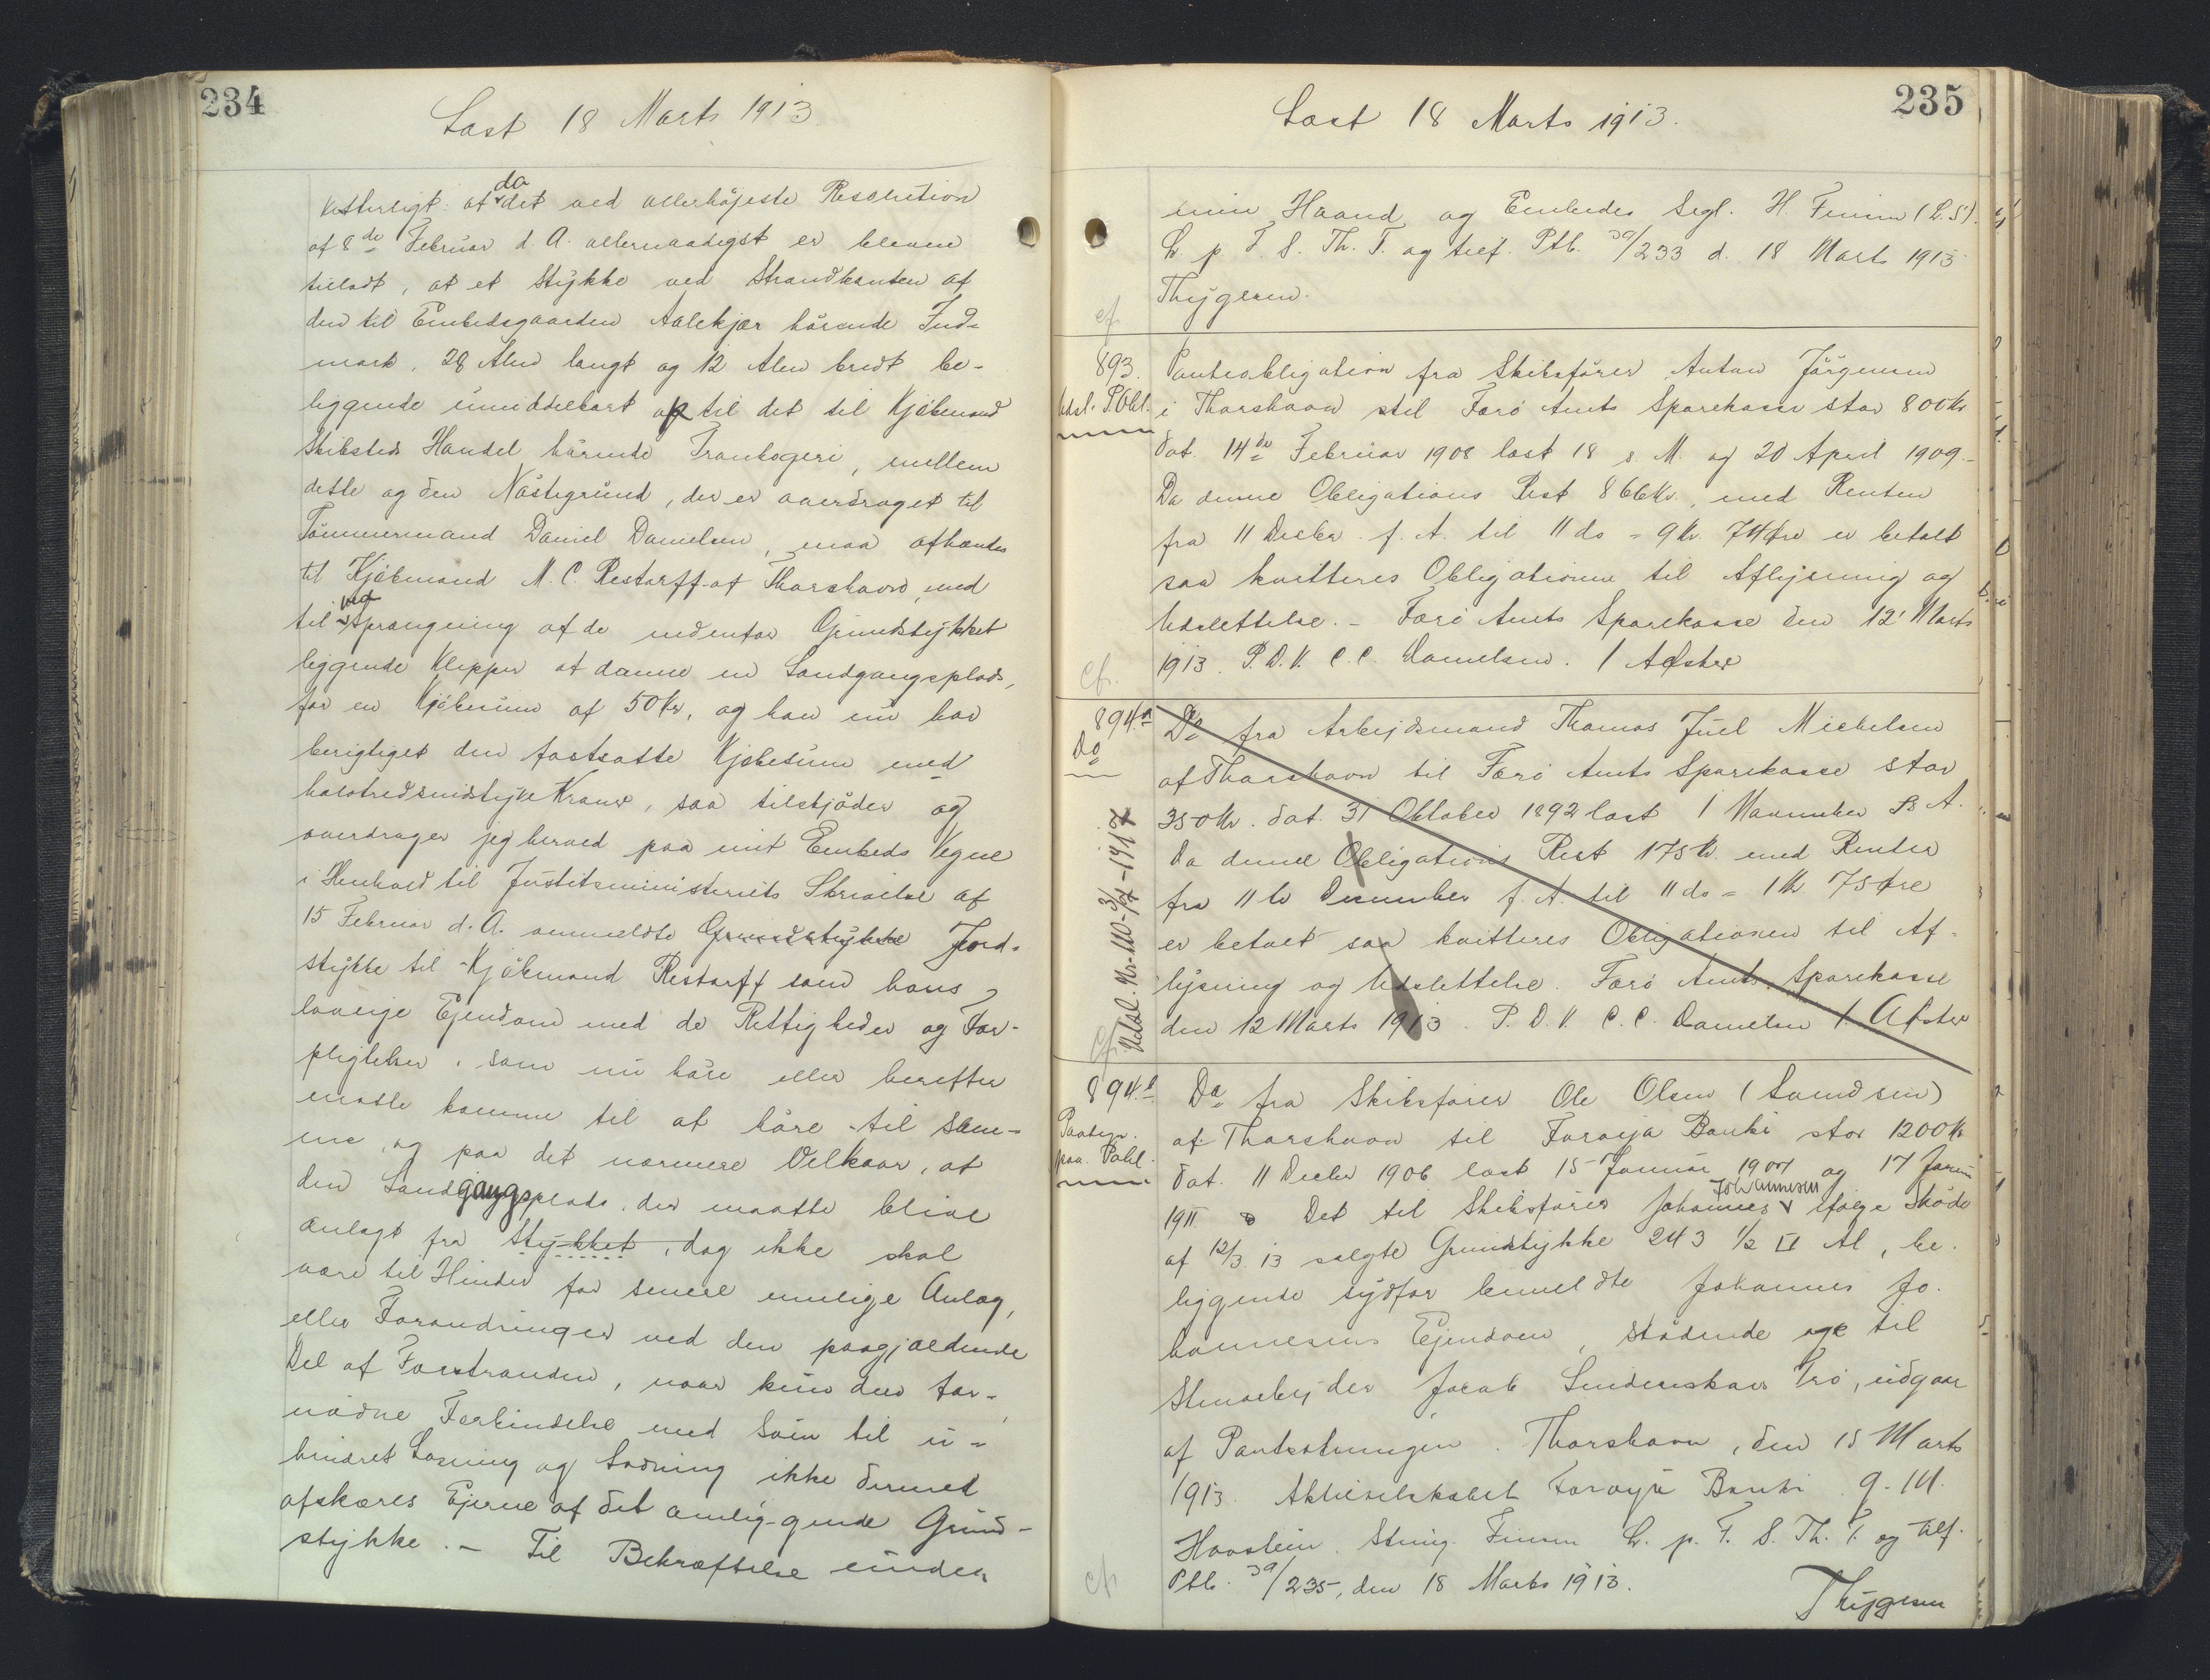 234
Læst 18 Marts 1913
vitterligt: at da det ved allerhøjeste Resolution
af 8de Februar d. A. allernaadigst er bleven
tilladt, at et Stykke ved Strandkanten af
den til Embedsgaarden Aalekjær hörende Ind-
mark, 28 Alen langt og 12 Alen bredt be-
liggende umiddelbart op til det til Kjöbmand
Skibsteds Handel hörende Trankogeri, mellem
dette og den Nöstegrund, der er overdraget til
Tömmermand Daniel Danielsen, maa afhændes
til Kjöbmand M. C. Restorff af Thorshavn, med
til ved Sprængning af de nedenfor Grundstykket
liggende Klipper at danne en Landgangsplads,
for en Kjöbesum af 50 Kr, og han nu har
berigtiget den fastsatte Kjöbesum med
halvtredsindstyve Kroner, saa tilskjöder og
overdrager jeg herved paa mit Embeds Vegne
i Henhold til Justitsministeriets Skrivelse af
15 Februar d. A. ommeldte Grundstykke Jord-
stykke til Kjöbmand Restorff som hans
lovlige Ejendom med de Rettigheder og For-
pligtelser, som nu höre eller herefter
maatte komme til at höre til sam-
me, og paa det nærmere Vilkaar, at
den Landgangsplads, der maatte blive
anlagt fra Stykket, dog ikke skal
være til Hinder for senere mulige Anlæg,
eller Forandringer ved den paagjældende
Del af Forstranden, naar kun den for-
nödne Forbindelse med Söen til u-
hindret Losning og Ladning ikke dermed
afskæres Ejerne af det omlig-gende Grund-
stykke. - Til Bekræftelse under
235
Læst 18 Marts 1913.
min Haand og Embedes Segl. H Finsen (L.S).
L. p. F. S. Th. T. og tilf. Ptb. 39/233 d. 18 Marts 1913
Thygesen.
cfr
893. Panteobligation fra Skibsförer Anton Jörgensen
Udsl. PObl. i Thorshavn til Færö Amts Sparekasse stor 800 Kr
dat. 14de Februar 1908 læst 18 s. M. og 20 April 1909.-
Da denne Obligations Rest 866 Kr. med Renten
fra 11 Decbr. f. A. til 11 ds = 9 Kr. 74 Øre er betalt
saa kvitteres Obligationen til Aflysning og
Udslettelse. - Færö Amts Sparekasse den 12' Marts
1913. P. D. V. C. C. Danielsen. / A Østerø
cfr.
894.a Do fra Arbejdsmand Thomas Juel Michelsen
Do
af Thorshavn til Færö Amts Sparekasse stor
350 Kr. dat. 31 Oktober 1892 læst 1 November s A.
Da denne Obligations Rest 175 Kr. med Renter
fra 11te December f. A. til 11 ds = 1 Kr 75 Øre
er betalt saa kvitteres Obligationen til Af-
lysning og Udslettelse. Færö Amts Sparekasse
den 12 Marts 1913. P. D. V. C. C. Danielsen /
cfr
894.b Do fra Skibsförer Ole Olsen
Pantefr.
paa Pobl.
af Thorshavn til Föroya Banki stor 1200 Kr
dat. 11 Decbr 1906 læst 15 Januar 1907 og 17 Januar
1911. Det til Skibsförer Johannes Johannesen ifölge Sköde
af 12/3 13 solgte Grundstykke 243 1/2 □ Al, be-
liggende sydfor bemeldte Johannes Jo-
hannesens Ejendom, stödende op til
Stenarbejder Jacob, udgaar
af Pantsætningen. Thorshavn, den 15 Marts
1913. Aktieselskabet Föroya Banki.
Finsen L. p. F. S. Th. T. og tilf.
Ptb. 39/235, den 18 Marts 1913.
Thygesen
cfr